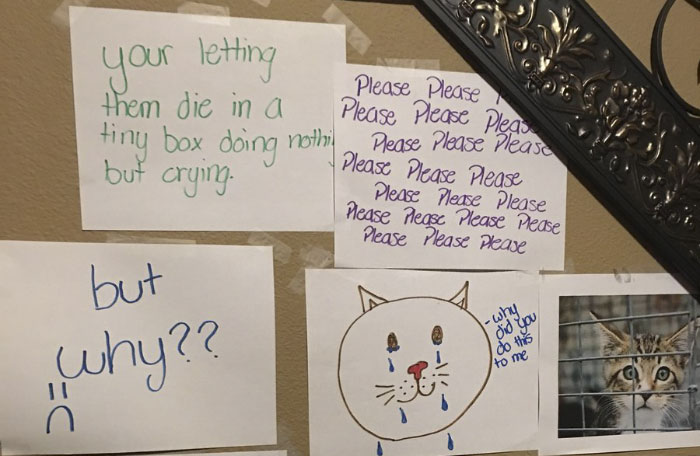 your letting
them die in a
tiny box doing
but crying.
Please Please
Please Please
Please Please Please
Please Please Please
Please Please Please
Please Please Please Please
Please Please Please
but
why??
=(
-why
did you
do this
to me